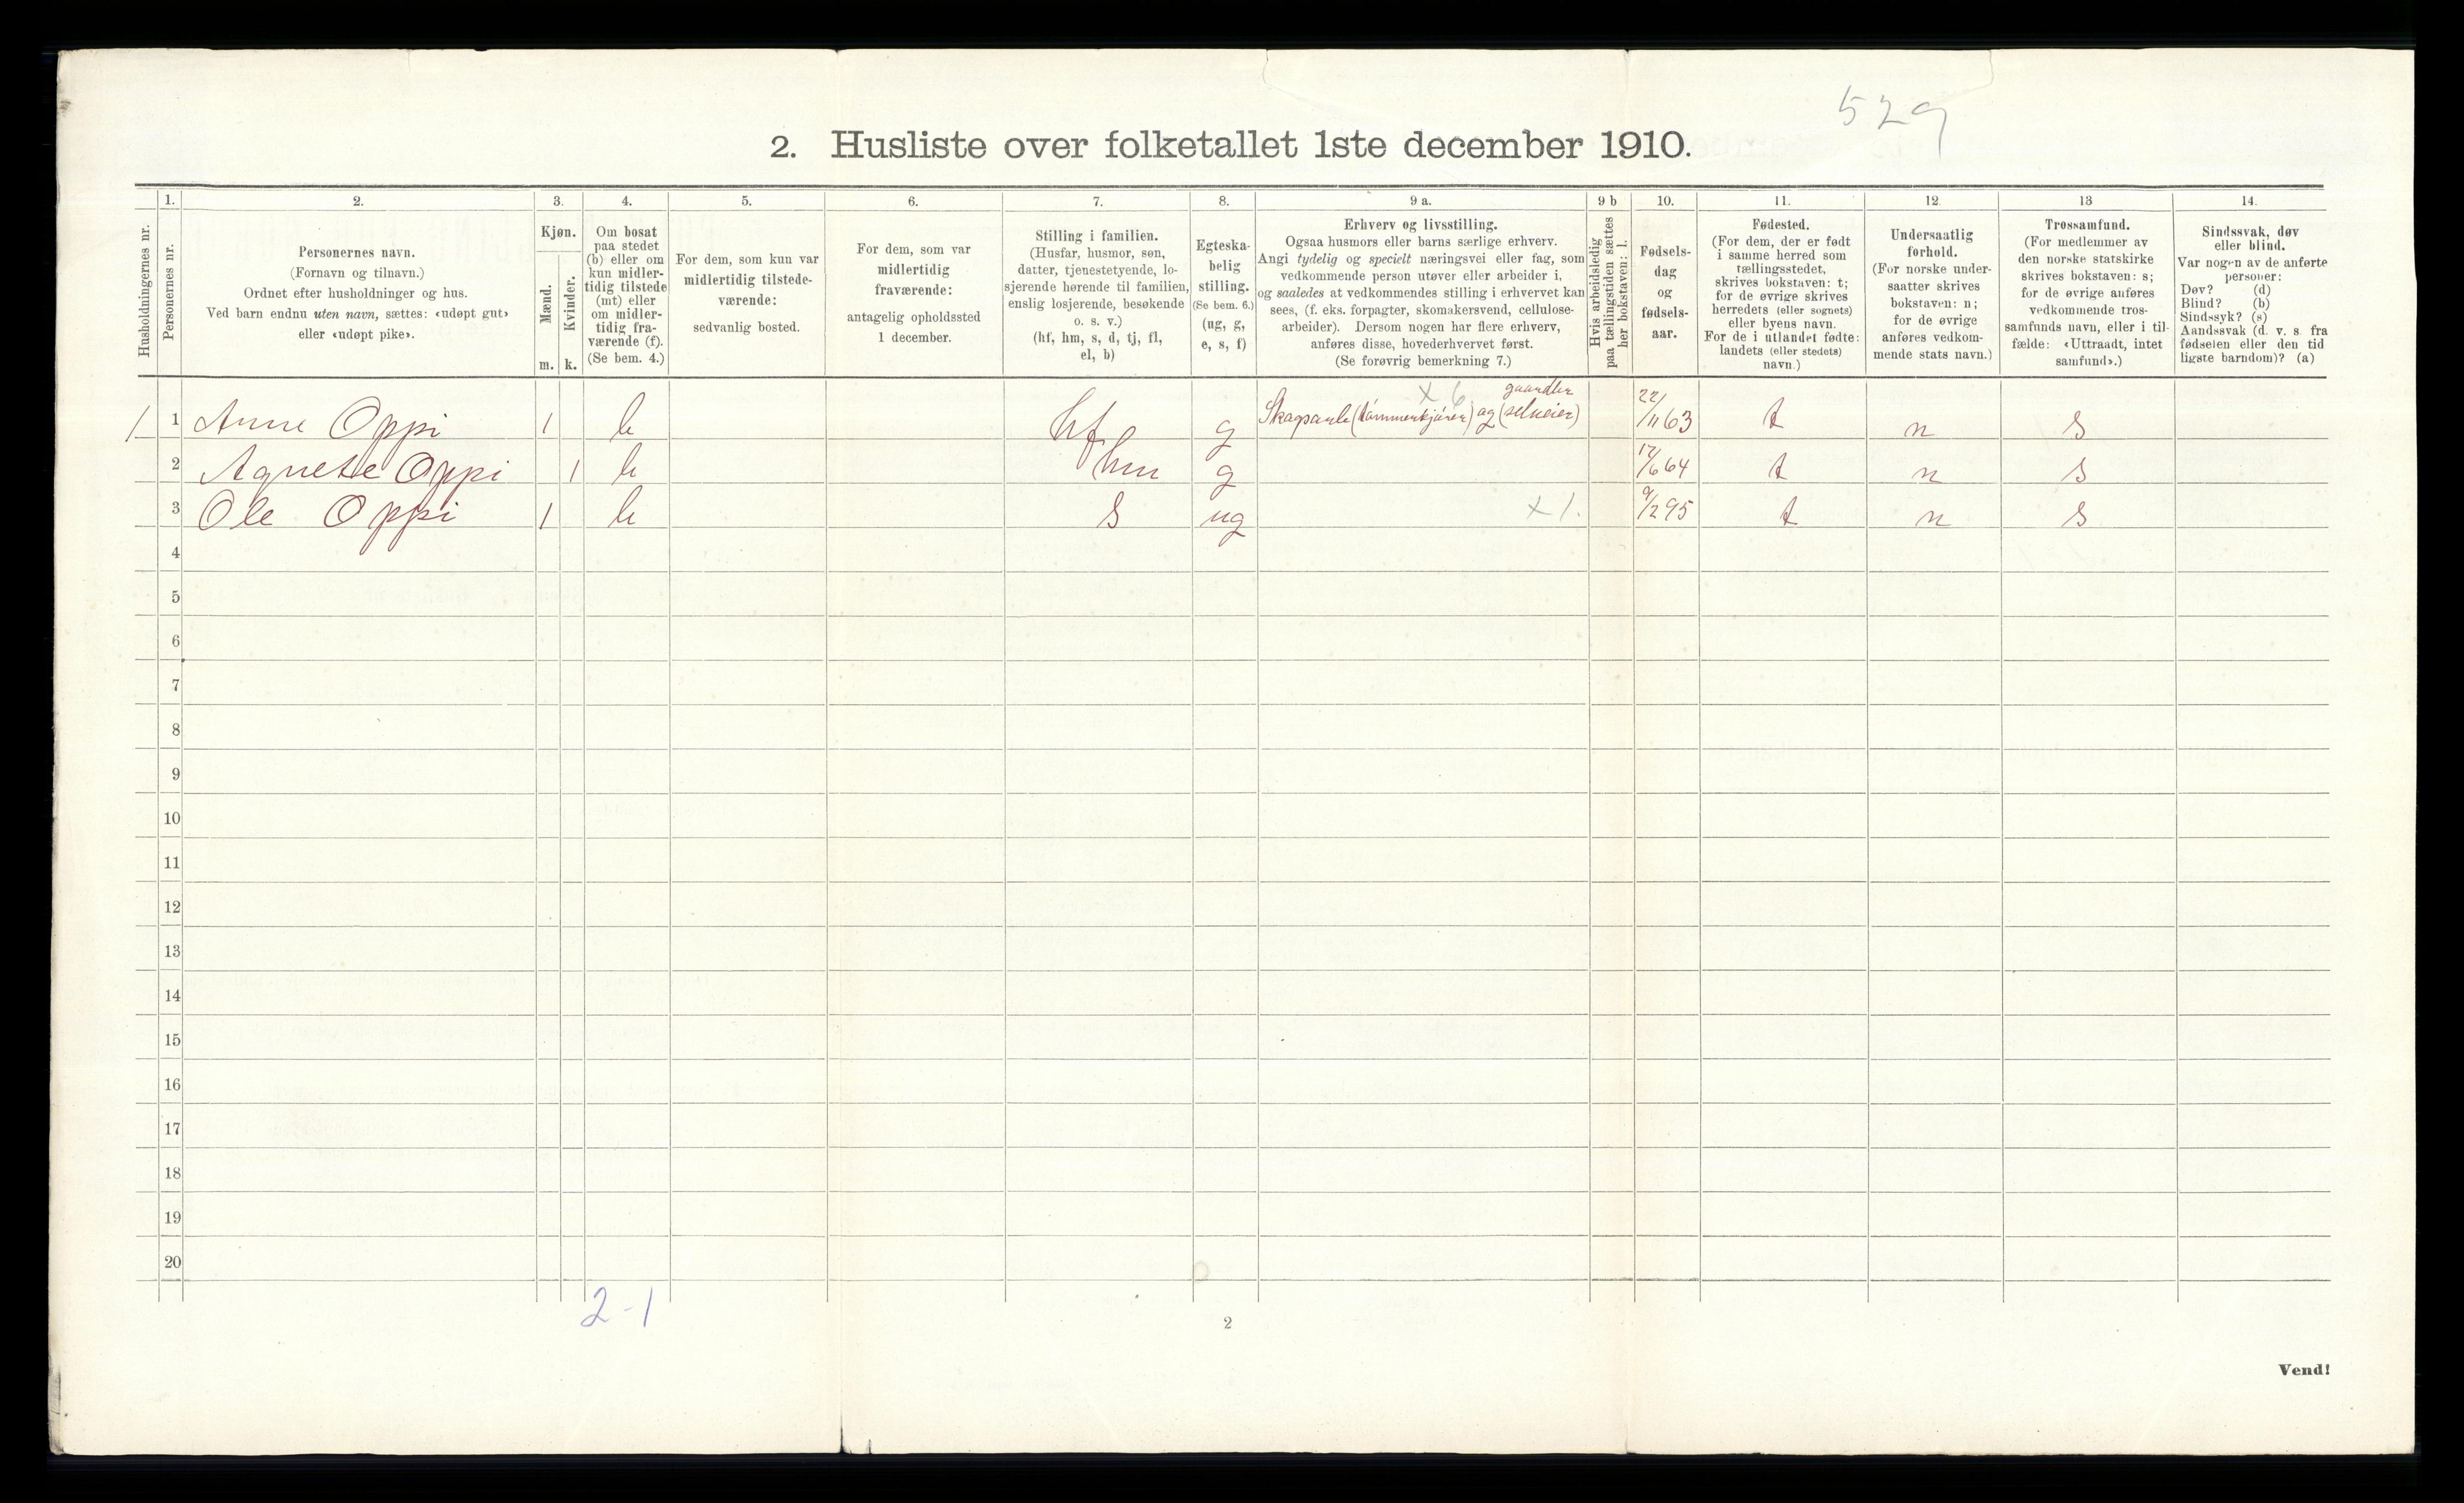 529
2. Husliste over folketallet 1ste december 1910.
Husholdningernes nr.
1.
Personernes nr.
2.
Personernes navn.
(Fornavn og tilnavn.)
Ordnet efter husholdninger og hus.
Ved barn endnu uten navn, sættes: «udøpt gut»
eller «udøpt pike».
3.
Kjøn.
Mænd.
m.
Kvinder.
k.
4.
Om bosat
paa stedet
(b) eller om
kun midler-
tidig tilstede
(mt) eller
om midler-
tidig fra-
værende (f).
(Se bem. 4.)
5.
For dem, som kun var
midlertidig tilstede-
værende:
sedvanlig bosted.
6.
For dem, som var
midlertidig
fraværende:
antagelig opholdssted
1 december.
7.
Stilling i familien.
(Husfar, husmor, søn,
datter, tjenestetyende, lo-
sjerende hørende til familien,
enslig losjerende, besøkende
o. s. v.)
(hf, hm, s, d, tj, fl,
el, b)
8.
Egteska-
belig
stilling.
(Se bem. 6.)
(ug, g,
e, s, f)
9 a.
Erhverv og livsstilling.
Ogsaa husmors eller barns særlige erhverv.
Angi tydelig og specielt næringsvei eller fag, som
vedkommende person utøver eller arbeider i,
og saaledes at vedkommendes stilling i erhvervet kan
sees, (f. eks. forpagter, skomakersvend, cellulose-
arbeider). Dersom nogen har flere erhverv,
anføres disse, hovederhvervet først.
(Se forøvrig bemerkning 7.)
9 b
Hvis arbeidsledig
paa tællingstiden sættes
her bokstaven: l.
10.
Fødsels-
dag
og
fødsels-
aar.
11.
Fødested.
(For dem, der er født
i samme herred som
tællingsstedet,
skrives bokstaven: t;
for de øvrige skrives
herredets (eller sognets)
eller byens navn.
For de i utlandet fødte:
landets (eller stedets)
navn.)
12.
Undersaatlig
forhold.
(For norske under-
saatter skrives
bokstaven: n;
for de øvrige
anføres vedkom-
mende stats navn.)
13
Trossamfund.
(For medlemmer av
den norske statskirke
skrives bokstaven: s;
for de øvrige anføres
vedkommende tros-
samfunds navn, eller i til-
fælde: «Uttraadt, intet
samfund».)
14.
Sindssvak, døv
eller blind.
Var nogen av de anførte
personer:
Døv? (d)
Blind? (b)
Sindssyk? (s)
Aandssvak (d. v. s. fra
fødselen eller den tid
ligste barndom)? (a)
x 6 gaardbr
1 1 Arne Oppi 1 b hf g (tømmerkjører) og (selveier) 22/11 63 t n s
2 Agnete Oppi 1 b hm g 17/6 64 t n s
3 Ole Oppi 1 b s ug x 1. 9/2 95 t n s
4
5
6
7
8
9
10
11
12
13
14
15
16
17
18
19
20
2-1
2
Vend!